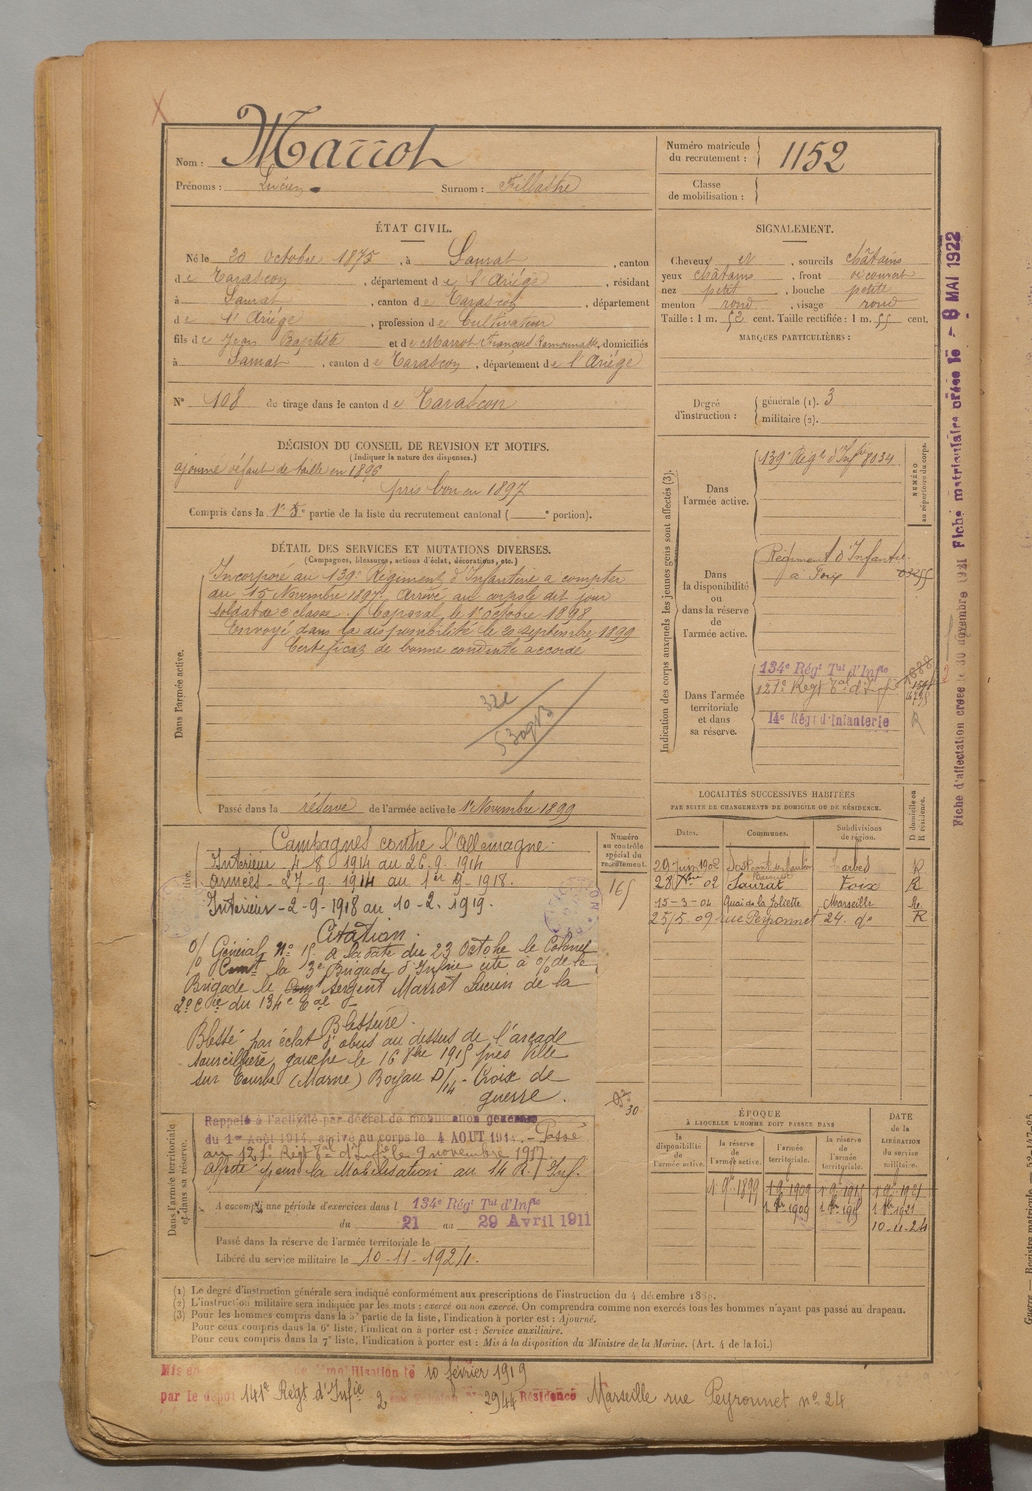 Nom : Marrot
Prénoms : Lucien Surnom :
Numéro matricule du recrutement : 1152
Classe de mobilisation :
ÉTAT CIVIL.
Né le 20 Octobre 1875, à Saurat, canton
de Tarascon, département de l'Ariège, résidant
à Saurat, canton de Tarascon, département
de l'Ariège, profession de Cultivateur
fils de Jean Baptiste et de Marrot Françoise, domiciliés
à Saurat, canton de Tarascon, département de l'Ariège
N° 108 de tirage dans le canton de Tarascon
SIGNALEMENT.
Cheveux et, sourcils châtains
yeux châtains, front découvert
nez petit, bouche petite
menton rond, visage rond
Taille : 1 m. 52 cent. Taille rectifiée : 1 m. 55 cent.
MARQUES PARTICULIÈRES :
Degré d'instruction : générale (1). 3
militaire (2).
DÉCISION DU CONSEIL DE REVISION ET MOTIFS.
(Indiquer la nature des dispenses.)
ajourné défaut de taille en 1896
pris bon en 1897
Compris dans la partie de la liste du recrutement cantonal ( ° portion).
DÉTAIL DES SERVICES ET MUTATIONS DIVERSES.
(Campagnes, blessures, actions d'éclat, décorations, etc.)
Dans l'armée active.
Incorporé au 139e Régiment d'Infanterie a compter
du 15 Novembre 1897. Arrivé au corps le dit jour
soldat de 2e classe. Caporal le 1er octobre 1898
Envoyé dans la disponibilité le 20 septembre 1899
Certificat de bonne conduite accordé
Passé dans la réserve de l'armée active le 1er Novembre 1899
Indication des corps auxquels les jeunes gens sont affectés (3).
NUMÉRO au répertoire du corps.
Dans l'armée active.
139e Régt d'Infie 8034
Dans la disponibilité ou dans la réserve de l'armée active.
Régiment d'Infanterie
a Foix
Dans l'armée territoriale et dans sa réserve.
134e Régt Tal d'Infie
121e Régt Tal d'Infie
14e Régt d'Infanterie
R
LOCALITÉS SUCCESSIVES HABITÉES
PAR SUITE DE CHANGEMENTS DE DOMICILE OU DE RÉSIDENCE.
Dates. Communes. Subdivisions de région. D domicile ou R résidence.
29 Juin 1902 Tarbes R
28 02 Saurat Foix R
15-3-04 Quai de la Joliette Marseille R
25/5 09 rue Peyronnet 24. do R
Numéro au contrôle spécial du recrutement.
165
Campagnes contre l'Allemagne :
Intérieur - 4-8 1914 au 26-9-1914
Armées - 27-9-1914 au 1er 9-1918.
Intérieur - 2-9-1918 au 10-2-1919.
Citation.
O/ Général n° 15 a la date du 23 Octobre le Colonel
Comt la 3e Brigade d'Infrie cite à l'o/ de la
Brigade le Sergent Marrot Lucien de la
2e Cie du 134e Tal
Blessure.
Blessé par éclat d'obus au dessus de l'arcade
sourcilière gauche le 16 8bre 1915 près Ville
sur Tourbe (Marne) Boyau D/14 - Croix de
guerre.
Dans l'armée territoriale et dans sa réserve.
Rappelé à l'activité par décret de mobilisation générale
du 1er Août 1914, arrivé au corps le 4 AOUT 1914. - Passé
au 121e Régt Tal d'Infie le 9 novembre 1917.
Affecté pour la Mobilisation au 14 R. Inf.
A accompli une période d'exercices dans l 134e Régt Tal d'Infie
du 21 au 29 Avril 1911
Passé dans la réserve de l'armée territoriale le
Libéré du service militaire le 10-11-1924.
ÉPOQUE
À LAQUELLE L'HOMME DOIT PASSER DANS
la disponibilité de l'armée active.
la réserve de l'armée active.
l'armée territoriale.
la réserve de l'armée territoriale.
DATE de la LIBÉRATION du service militaire.
1 9bre 1899 1 9bre 1909 1 9bre 1915 1 9bre 1921
10-11-24
(1) Le degré d'instruction générale sera indiqué conformément aux prescriptions de l'instruction du 4 décembre
(2) L'instruction militaire sera indiquée par les mots : exercé ou non exercé. On comprendra comme non exercés tous les hommes n'ayant pas passé au drapeau.
(3) Pour les hommes compris dans la 5e partie de la liste, l'indication à porter est : Ajourné.
Pour ceux compris dans la 6e liste, l'indication à porter est : Service auxiliaire.
Pour ceux compris dans la 7e liste, l'indication à porter est : Mis à la disposition du Ministre de la Marine. (Art. 4 de la loi.)
10 février 1919
par le dépôt 141e Régt d'Infie 2944 Résidence Marseille rue Peyronnet n° 24
Fiche d'affectation créée le 30 novembre 1921 Fiche matriculaire créée le - 8 MAI 1922